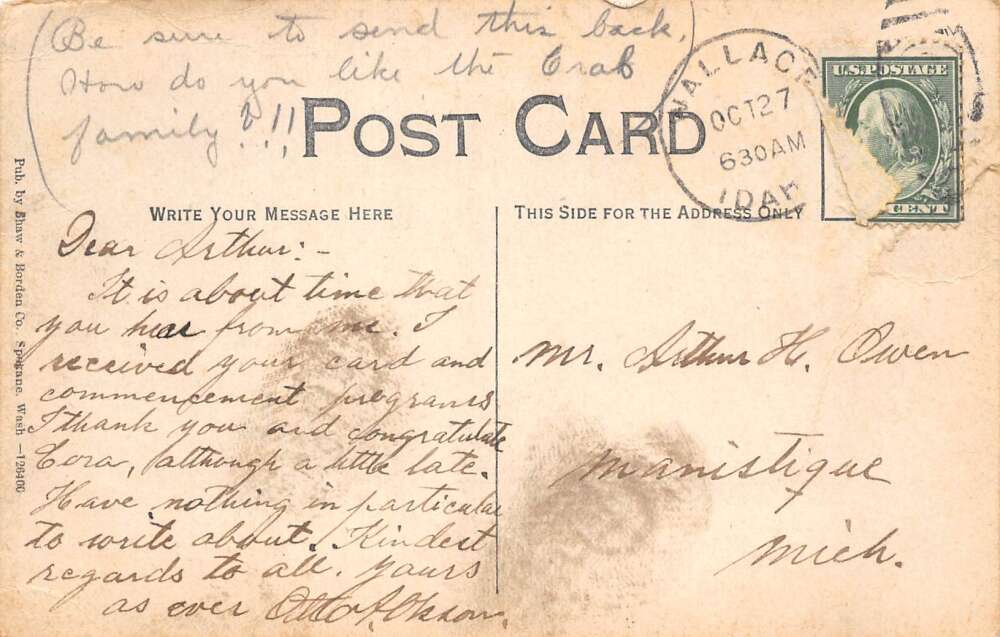 Be sure to send this back.
How do you like the Crab
family?!!!
POST CARD
WALLACE
OCT 27
630 AM
IDAH
U.S. POSTAGE
CENT
WRITE YOUR MESSAGE HERE
THIS SIDE FOR THE ADDRESS ONLY
Pub. by Shaw & Borden Co., Spokane, Wash —126400
Dear Arthur:-
It is about time that
you hear from me. I
received your card and
commencement programs
I thank you and congratulate
Cora, although a little late.
Have nothing in particular
to write about. Kindest
regards to all. Yours
as ever Otto A.
Mr. Arthur H. Owen
Manistique
Mich.